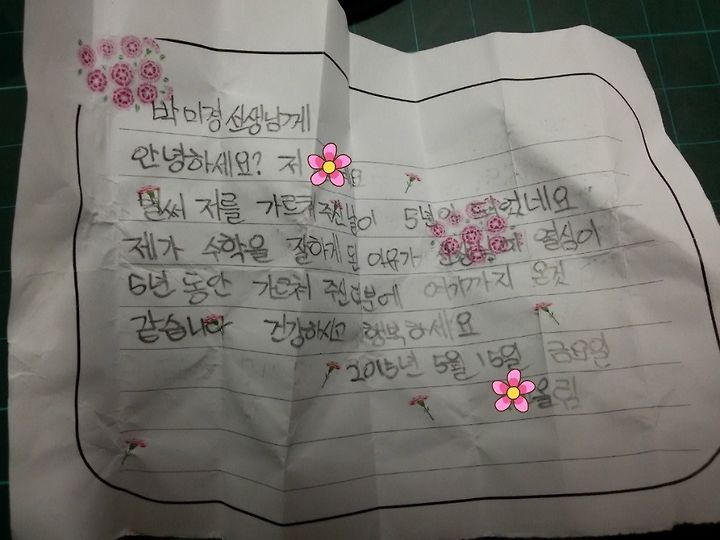 박미경 선생님께
안녕하세요? 저
벌써 저를 가르켜주신날이 5년이 되었네요
제가 수학을 잘하게 된 이유가 선생님이 열심이
5년 동안 가르쳐 주신 덕분에 여기까지 온것
같습니다 건강하시고 행복하세요
2015년 5월 15일 금요일
올림